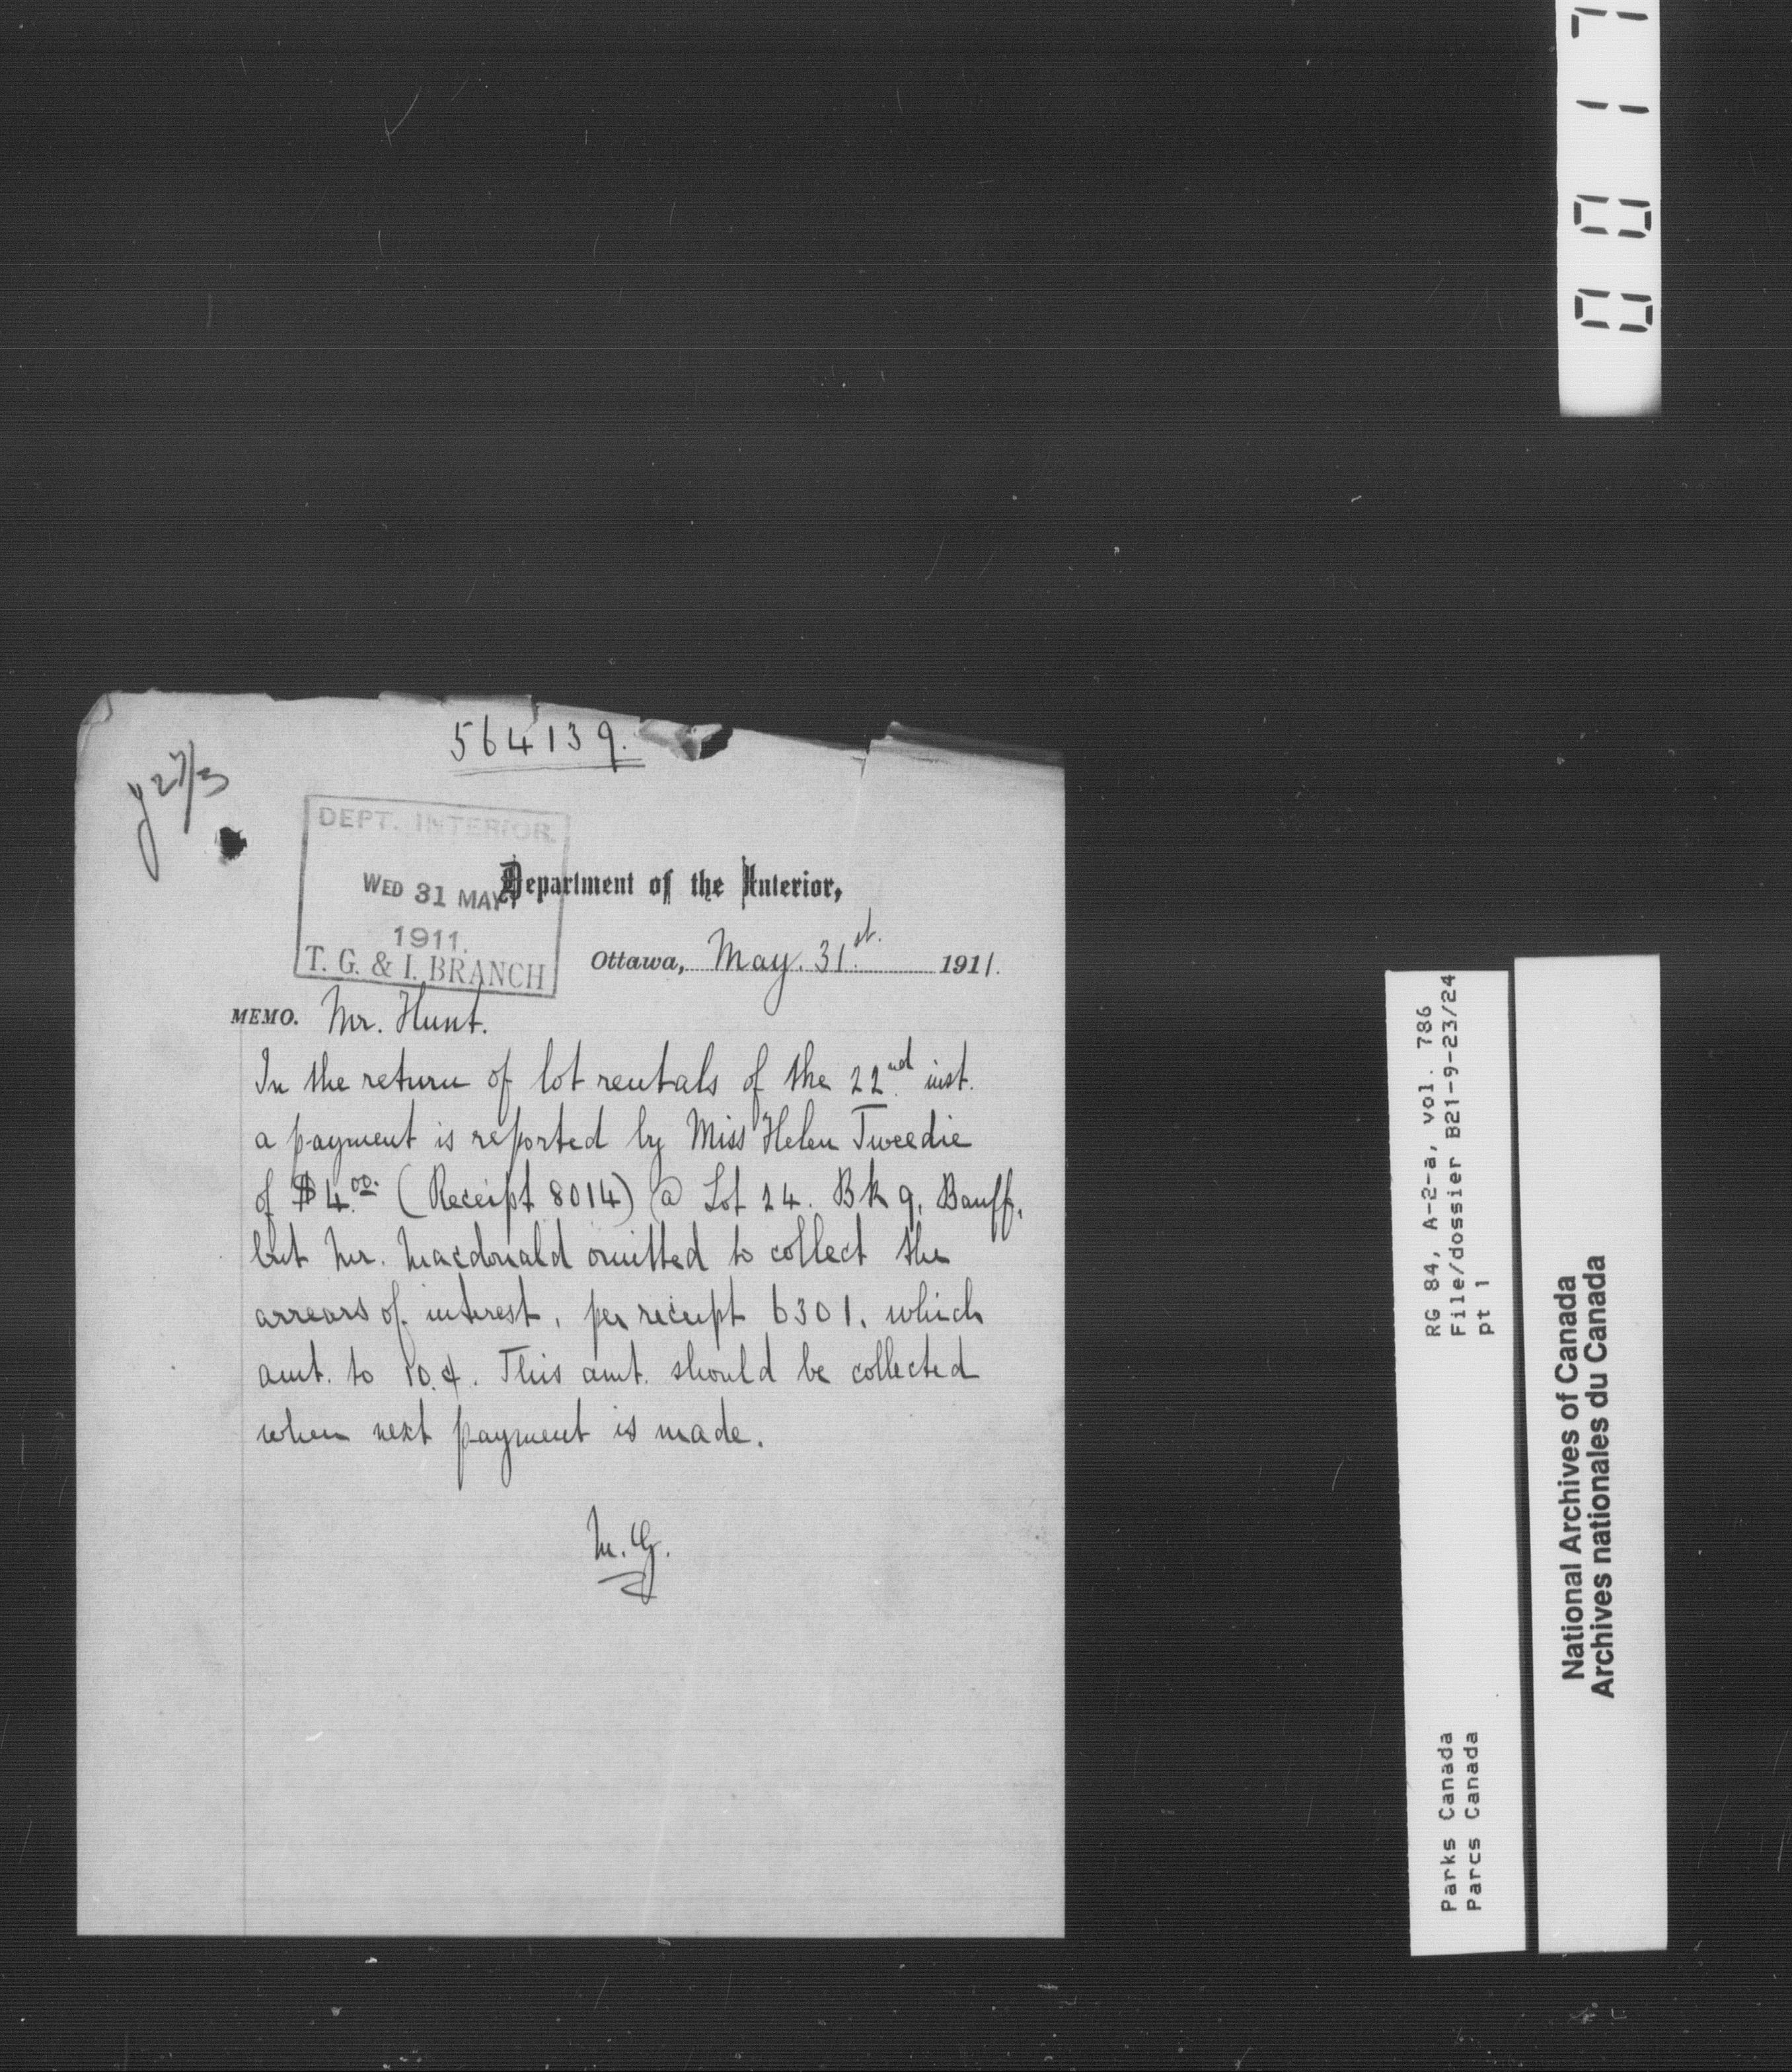 564139.
y 27/3
DEPT. INTERIOR.
WED 31 MAY
1911.
T. G. & I. BRANCH
Department of the Interior,
Ottawa, May. 31st. 1911.
MEMO. Mr. Hunt.
In the return of lot rentals of the 22nd inst.
a payment is reported by Miss Helen Tweedie
of $4.00 (Receipt 8014) @ Lot 24. Bk 9, Banff,
but Mr. Macdonald omitted to collect the
arrears of interest, per receipt 6301, which
amt. to 10.¢. This amt. should be collected
when next payment is made.
M.G.
0017
RG 84, A-2-a, vol. 786
File/dossier B21-9-23/24
pt 1
Parks Canada
Parcs Canada
National Archives of Canada
Archives nationales du Canada